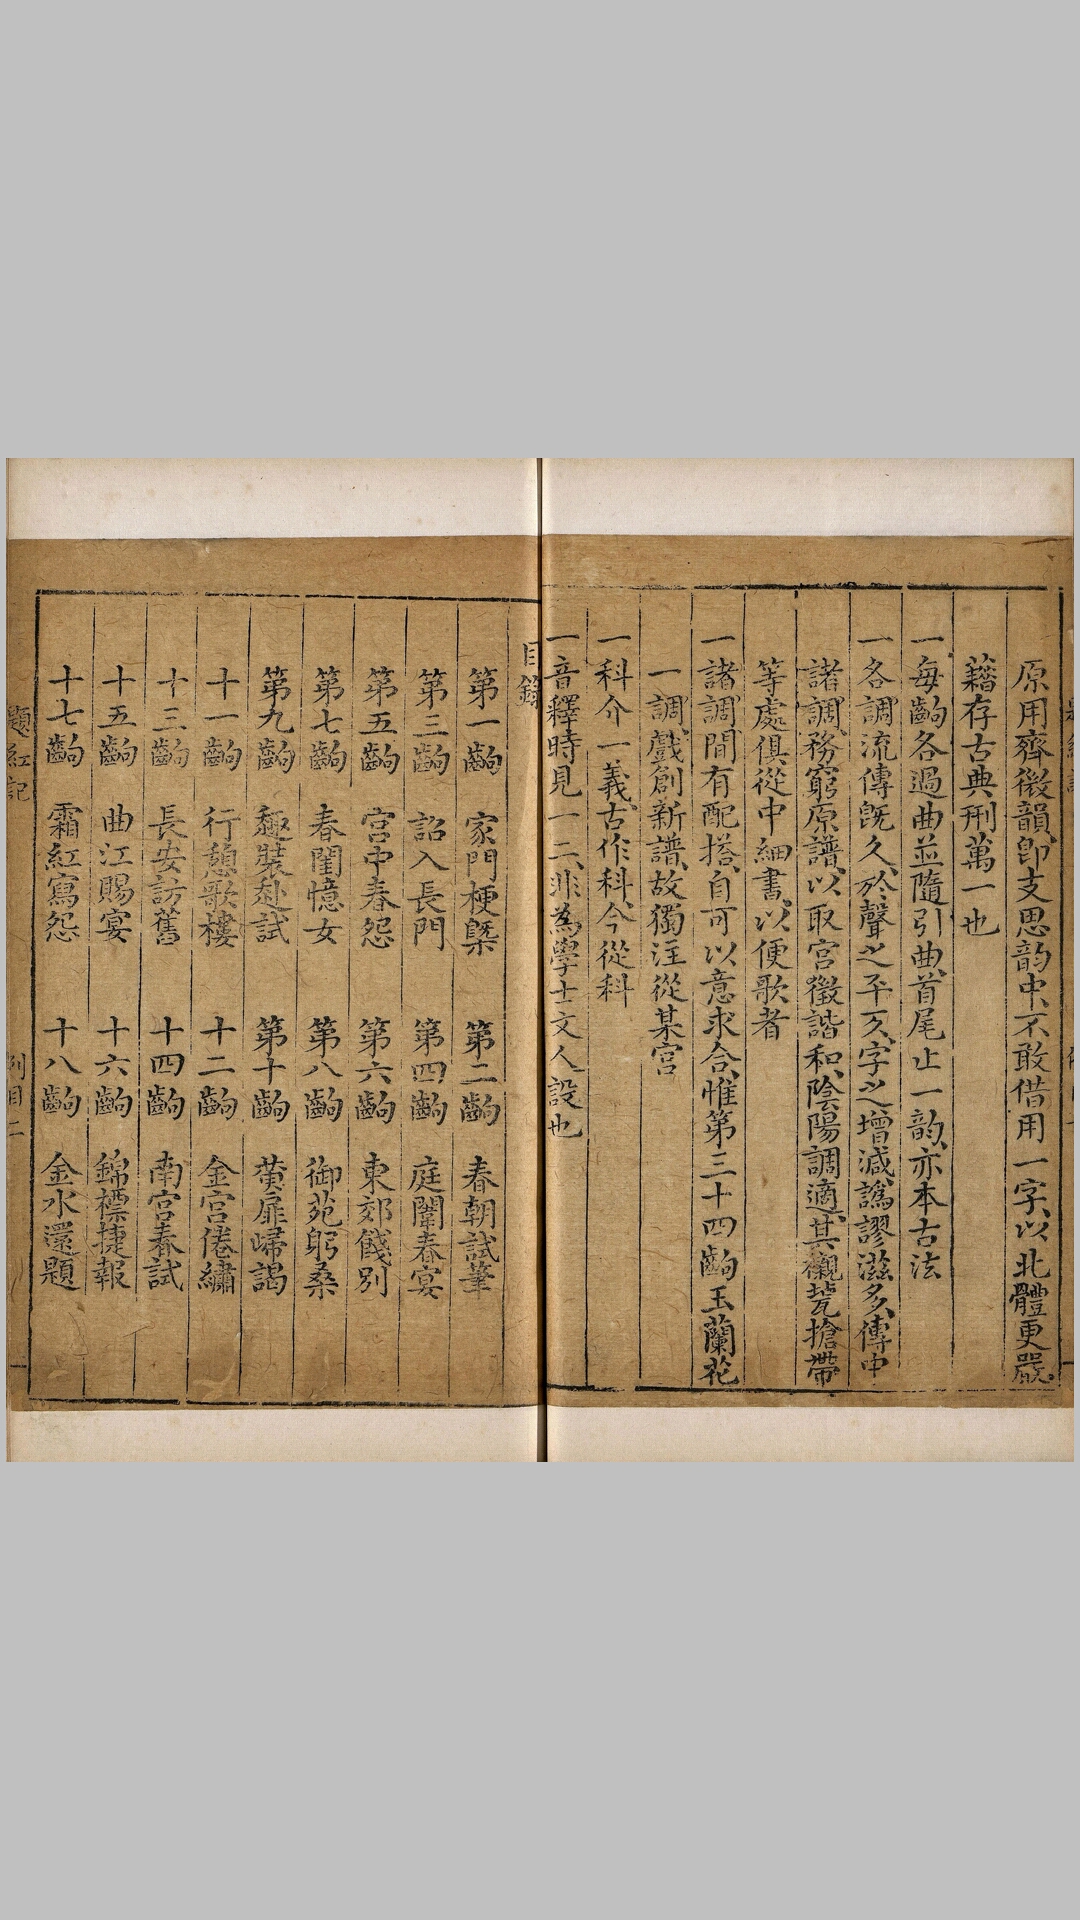 原用齊微韻、即支思韵中、不敢借用一字、以北體更嚴。
藉存古典刑萬一也
一每齣各過曲並隨引曲、首尾止一韵、亦本古法
一各調流傳旣久、於聲之平仄、字之增減、譌謬滋多、傳中
諸調、務窮原譜、以取宮徵諧和、陰陽調適、其襯墊搶帶
等處俱從中細書、以便歌者
一諸調、間有配搭、自可以意求合、惟第三十四齣玉蘭花
一調、戲創新譜、故獨注從某宮
一科介一義、古作科、今從科
一音釋時見一二、非為學士文人設也
目錄
第一齣 家門梗槩 第二齣 春朝試筆
第三齣 詔入長門 第四齣 庭闈春宴
第五齣 宮中春怨 第六齣 東郊餞別
第七齣 春閨憶女 第八齣 御苑躬桑
第九齣 趣裝赴試 第十齣 黄扉歸謁
十一齣 行憩歌樓 十二齣 金宮倦繡
十三齣 長安訪舊 十四齣 南宮春試
十五齣 曲江賜宴 十六齣 錦褾捷報
十七齣 霜紅寫怨 十八齣 金水還題
題紅記 例目 二